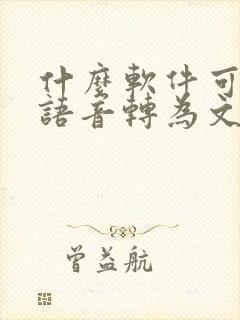 什麼軟件可
語音轉為文
曾益航